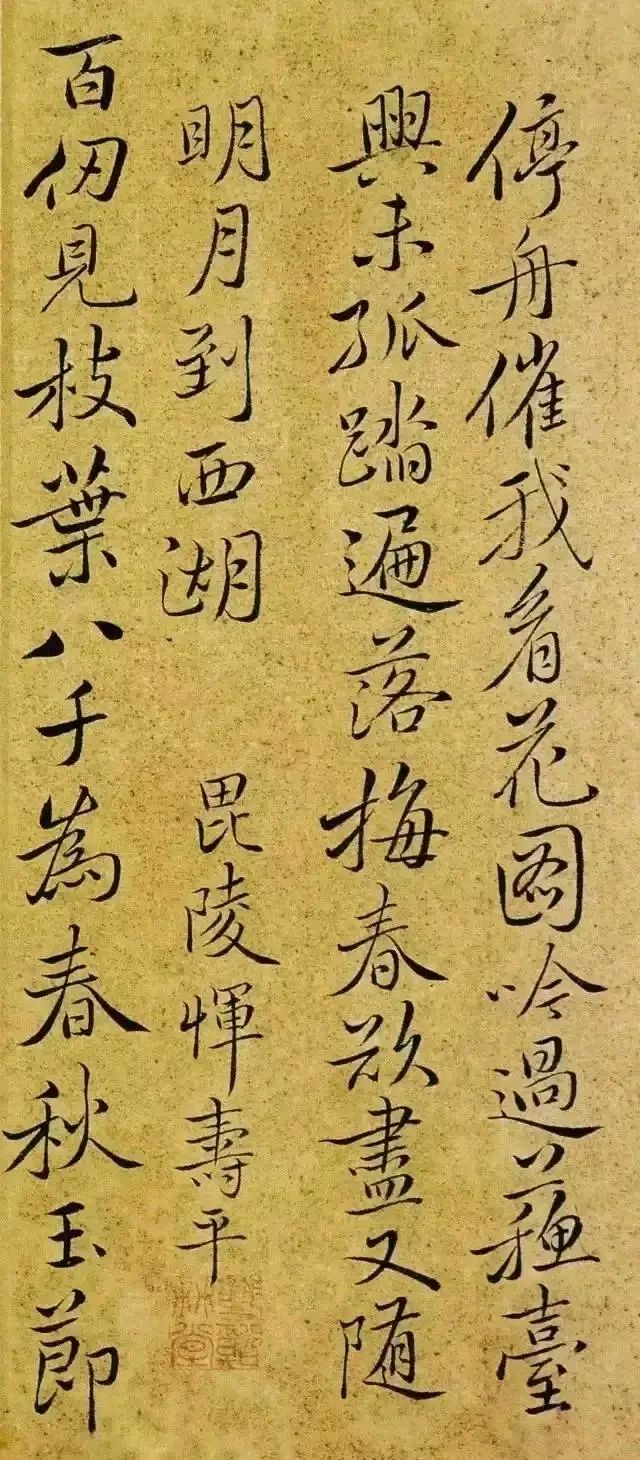 停舟催我看花圖吟過蘇臺
興未孤踏遍落梅春欲盡又随
明月到西湖 毘陵惲壽平
百仞見枝葉八千為春秋玉節